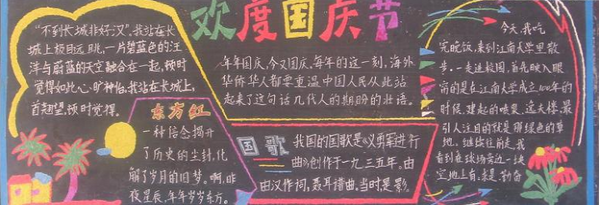 欢度国庆节
"不到长城非好汉",我站在长
城上极目远眺,一片碧蓝色的汪
洋与蔚蓝的天空融合在一起,顿时
觉得如此心旷神怡,我站在长城上,
首翘望,顿时觉得。
年年国庆,今又国庆,每年的这一刻,海外
华侨华人都要重温中国人民从此站
起来了这句话几代人的期盼的壮语。
东方红
一种信念揭开
了历史的尘封,化
解了岁月的旧梦。啊,昨
夜星辰,年年岁岁东方。
国歌
我国的国歌是《义勇军进行
曲》创作于一九三五年。由
由汉作词,聂耳谱曲,当时是影
今天,我吃
完晚饭,来到江南大学里散
步,一走进校园,首先映入眼
帘的是在江南大学成立100年的
时候,建起的喷泉,这大楼,最
引人注目的就是那绿色的草
地。继续往前走,我
看到在球场旁边一块
空地上有